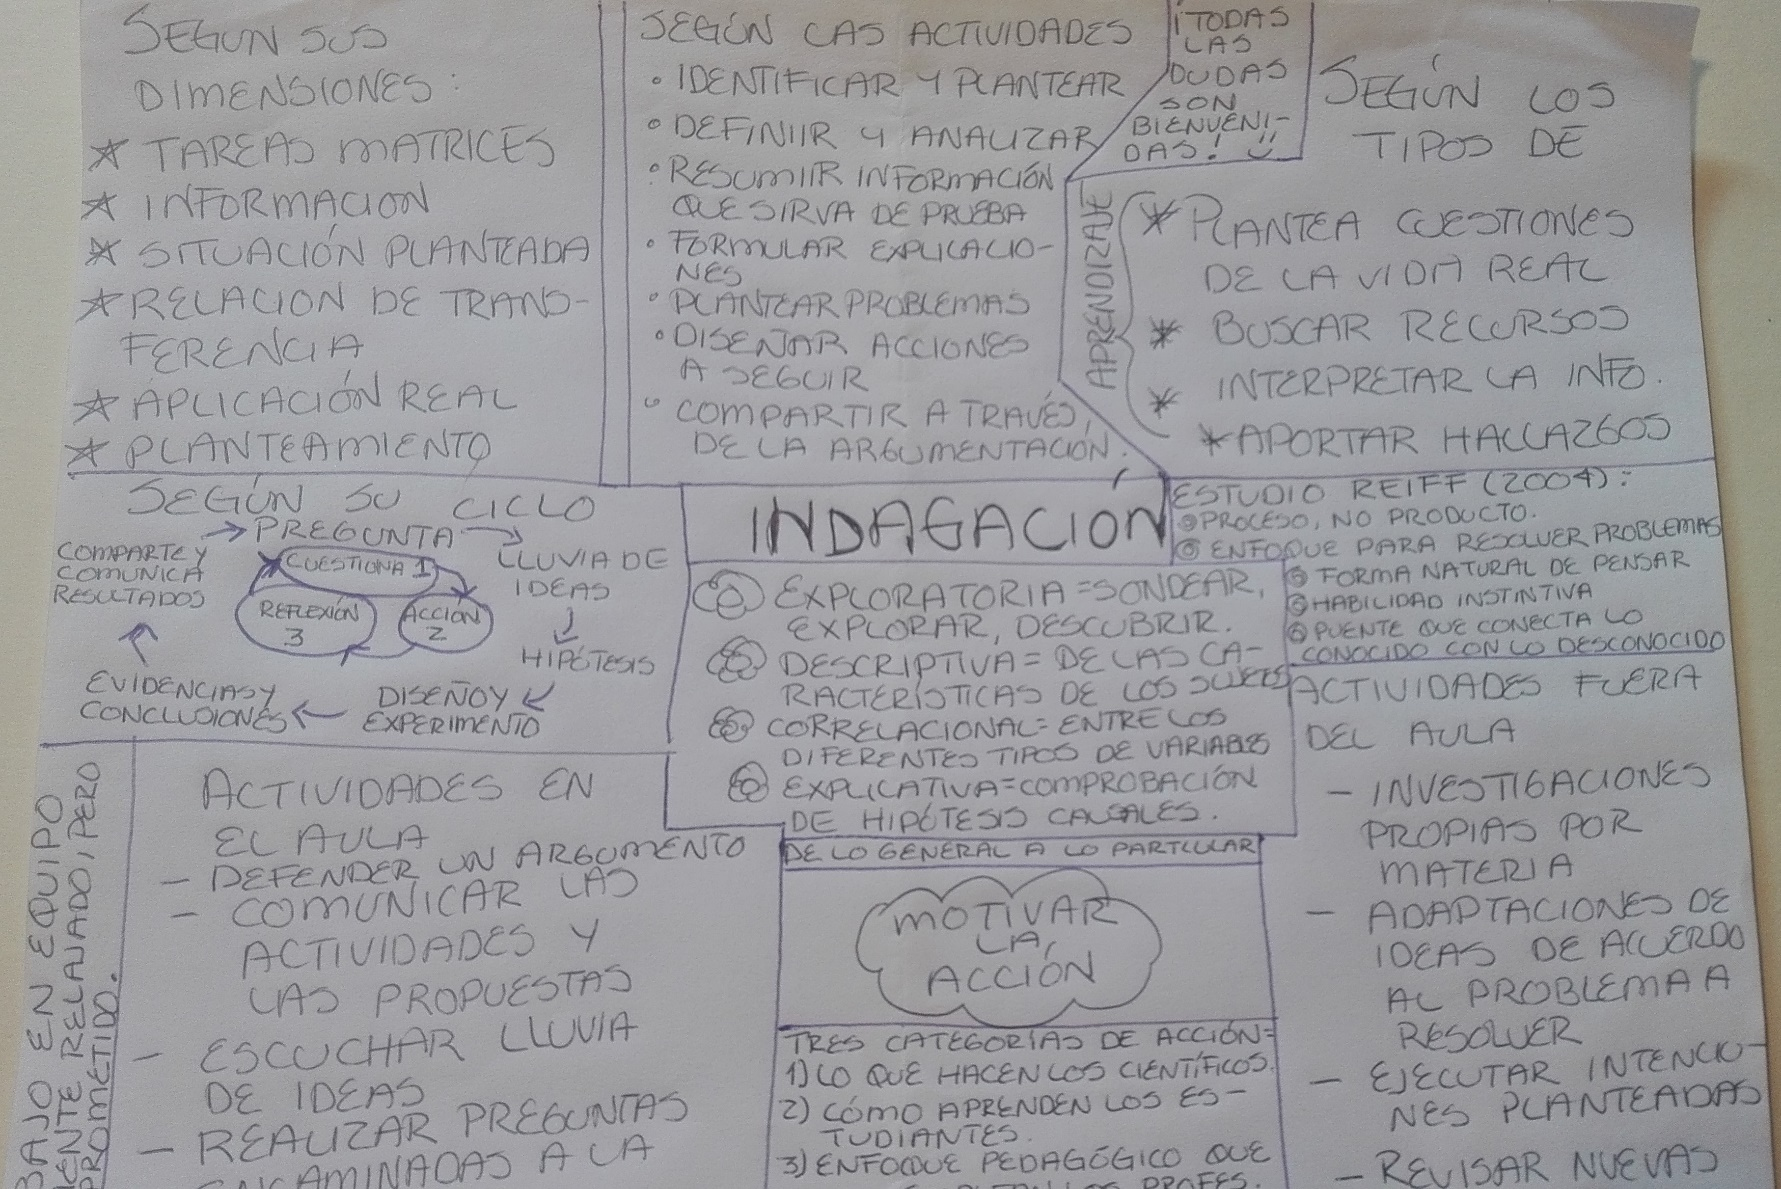 SEGUN SUS
DIMENSIONES:
TAREAS MATRICES
INFORMACION
SITUACIÓN PLANTEADA
RELACION DE TRANS-
FERENCIA
APLICACIÓN REAL
PLANTEAMIENTO
SEGÚN LAS ACTIVIDADES
• IDENTIFICAR Y PLANTEAR
• DEFINIIR Y ANALIZAR
• RESUMIIR INFORMACIÓN
QUE SIRVA DE PRUEBA
• FORMULAR EXPLICACIO-
NES
• PLANTEAR PROBLEMAS
• DISEÑAR ACCIONES
A SEGUIR
• COMPARTIR A TRAVÉS,
DE LA ARGUMENTACIÓN.
¡TODAS
LAS
DUDAS
SON
BIENVENI-
DAS!
SEGÚN LOS
TIPOS DE
APRENDIZAJE
* PLANTEA CUESTIONES
DE LA VIDA REAL
* BUSCAR RECURSOS
* INTERPRETAR LA INFO.
* APORTAR HALLAZGOS
SEGÚN SU CICLO
PREGUNTA
LLUVIA DE
IDEAS
HIPÓTESIS
DISEÑO Y
EXPERIMENTO
EVIDENCIAS Y
CONCLUSIONES
COMPARTE Y
COMUNICA
RESULTADOS
CUESTIONA 1
ACCIÓN
2
REFLEXIÓN
3
INDAGACIÓN
EXPLORATORIA = SONDEAR,
EXPLORAR, DESCUBRIR.
DESCRIPTIVA = DE LAS CA-
RACTERÍSTICAS DE LOS SUJETOS
CORRELACIONAL = ENTRE LOS
DIFERENTES TIPOS DE VARIABLES
EXPLICATIVA = COMPROBACIÓN
DE HIPÓTESIS CAUSALES.
ESTUDIO REIFF (2004):
PROCESO, NO PRODUCTO.
ENFOQUE PARA RESOLVER PROBLEMAS
FORMA NATURAL DE PENSAR
HABILIDAD INSTINTIVA
PUENTE QUE CONECTA LO
CONOCIDO CON LO DESCONOCIDO
BAJO EN EQUIPO
MENTE RELAJADO, PERO
PROMETIDO.
ACTIVIDADES EN
EL AULA
- DEFENDER UN ARGUMENTO
- COMUNICAR LAS
ACTIVIDADES Y
LAS PROPUESTAS
- ESCUCHAR LLUVIA
DE IDEAS
- REALIZAR PREGUNTAS
ENCAMINADAS A LA
DE LO GENERAL A LO PARTICULAR
MOTIVAR
LA
ACCIÓN
TRES CATEGORÍAS DE ACCIÓN=
1) LO QUE HACEN LOS CIENTÍFICOS.
2) CÓMO APRENDEN LOS ES-
TUDIANTES.
3) ENFOQUE PEDAGÓGICO QUE
LOS PROFES.
ACTIVIDADES FUERA
DEL AULA
- INVESTIGACIONES
PROPIAS POR
MATERIA
- ADAPTACIONES DE
IDEAS DE ACUERDO
AL PROBLEMA A
RESOLVER
- EJECUTAR INTENCIO-
NES PLANTEADAS
- REVISAR NUEVAS